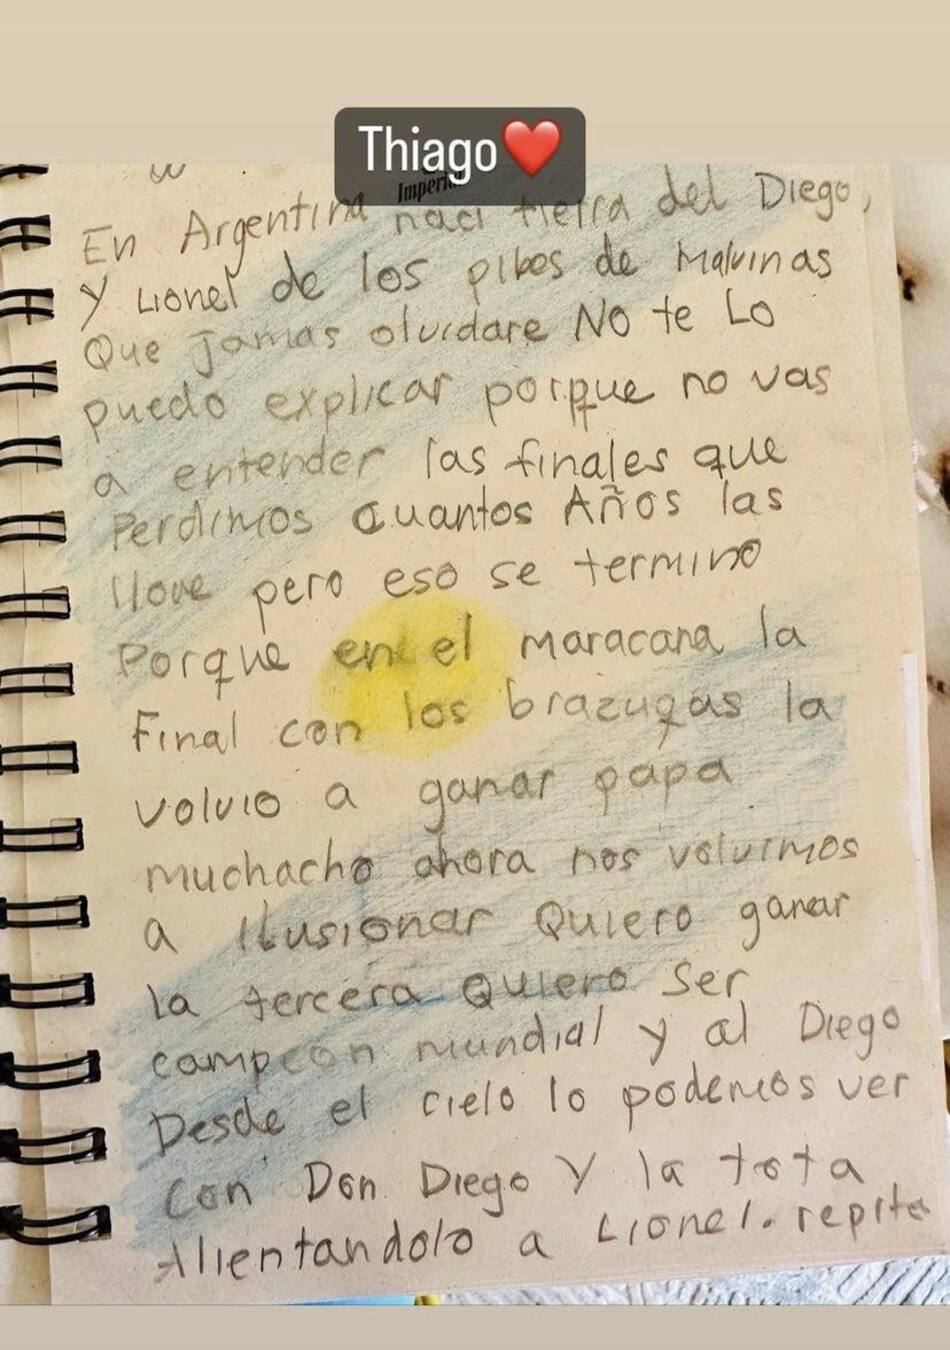 Thiago❤️
Imperi
En Argentina naci tierra del Diego,
Y Lionel de los pibes de Malvinas
Que jamas olvidare NO te Lo
puedo explicar porque no vas
a entender las finales que
Perdimos cuantos Años las
llove pero eso se termino
Porque en el maracana la
Final con los brazugas la
volvio a ganar papa
muchacho ahora nos volvimos
a Ilusionar Quiero ganar
la tercera Quiero Ser
campeon mundial y al Diego
Desde el cielo lo podemos ver
Con Don Diego Y la tota
Alientandolo a Lionel. repite